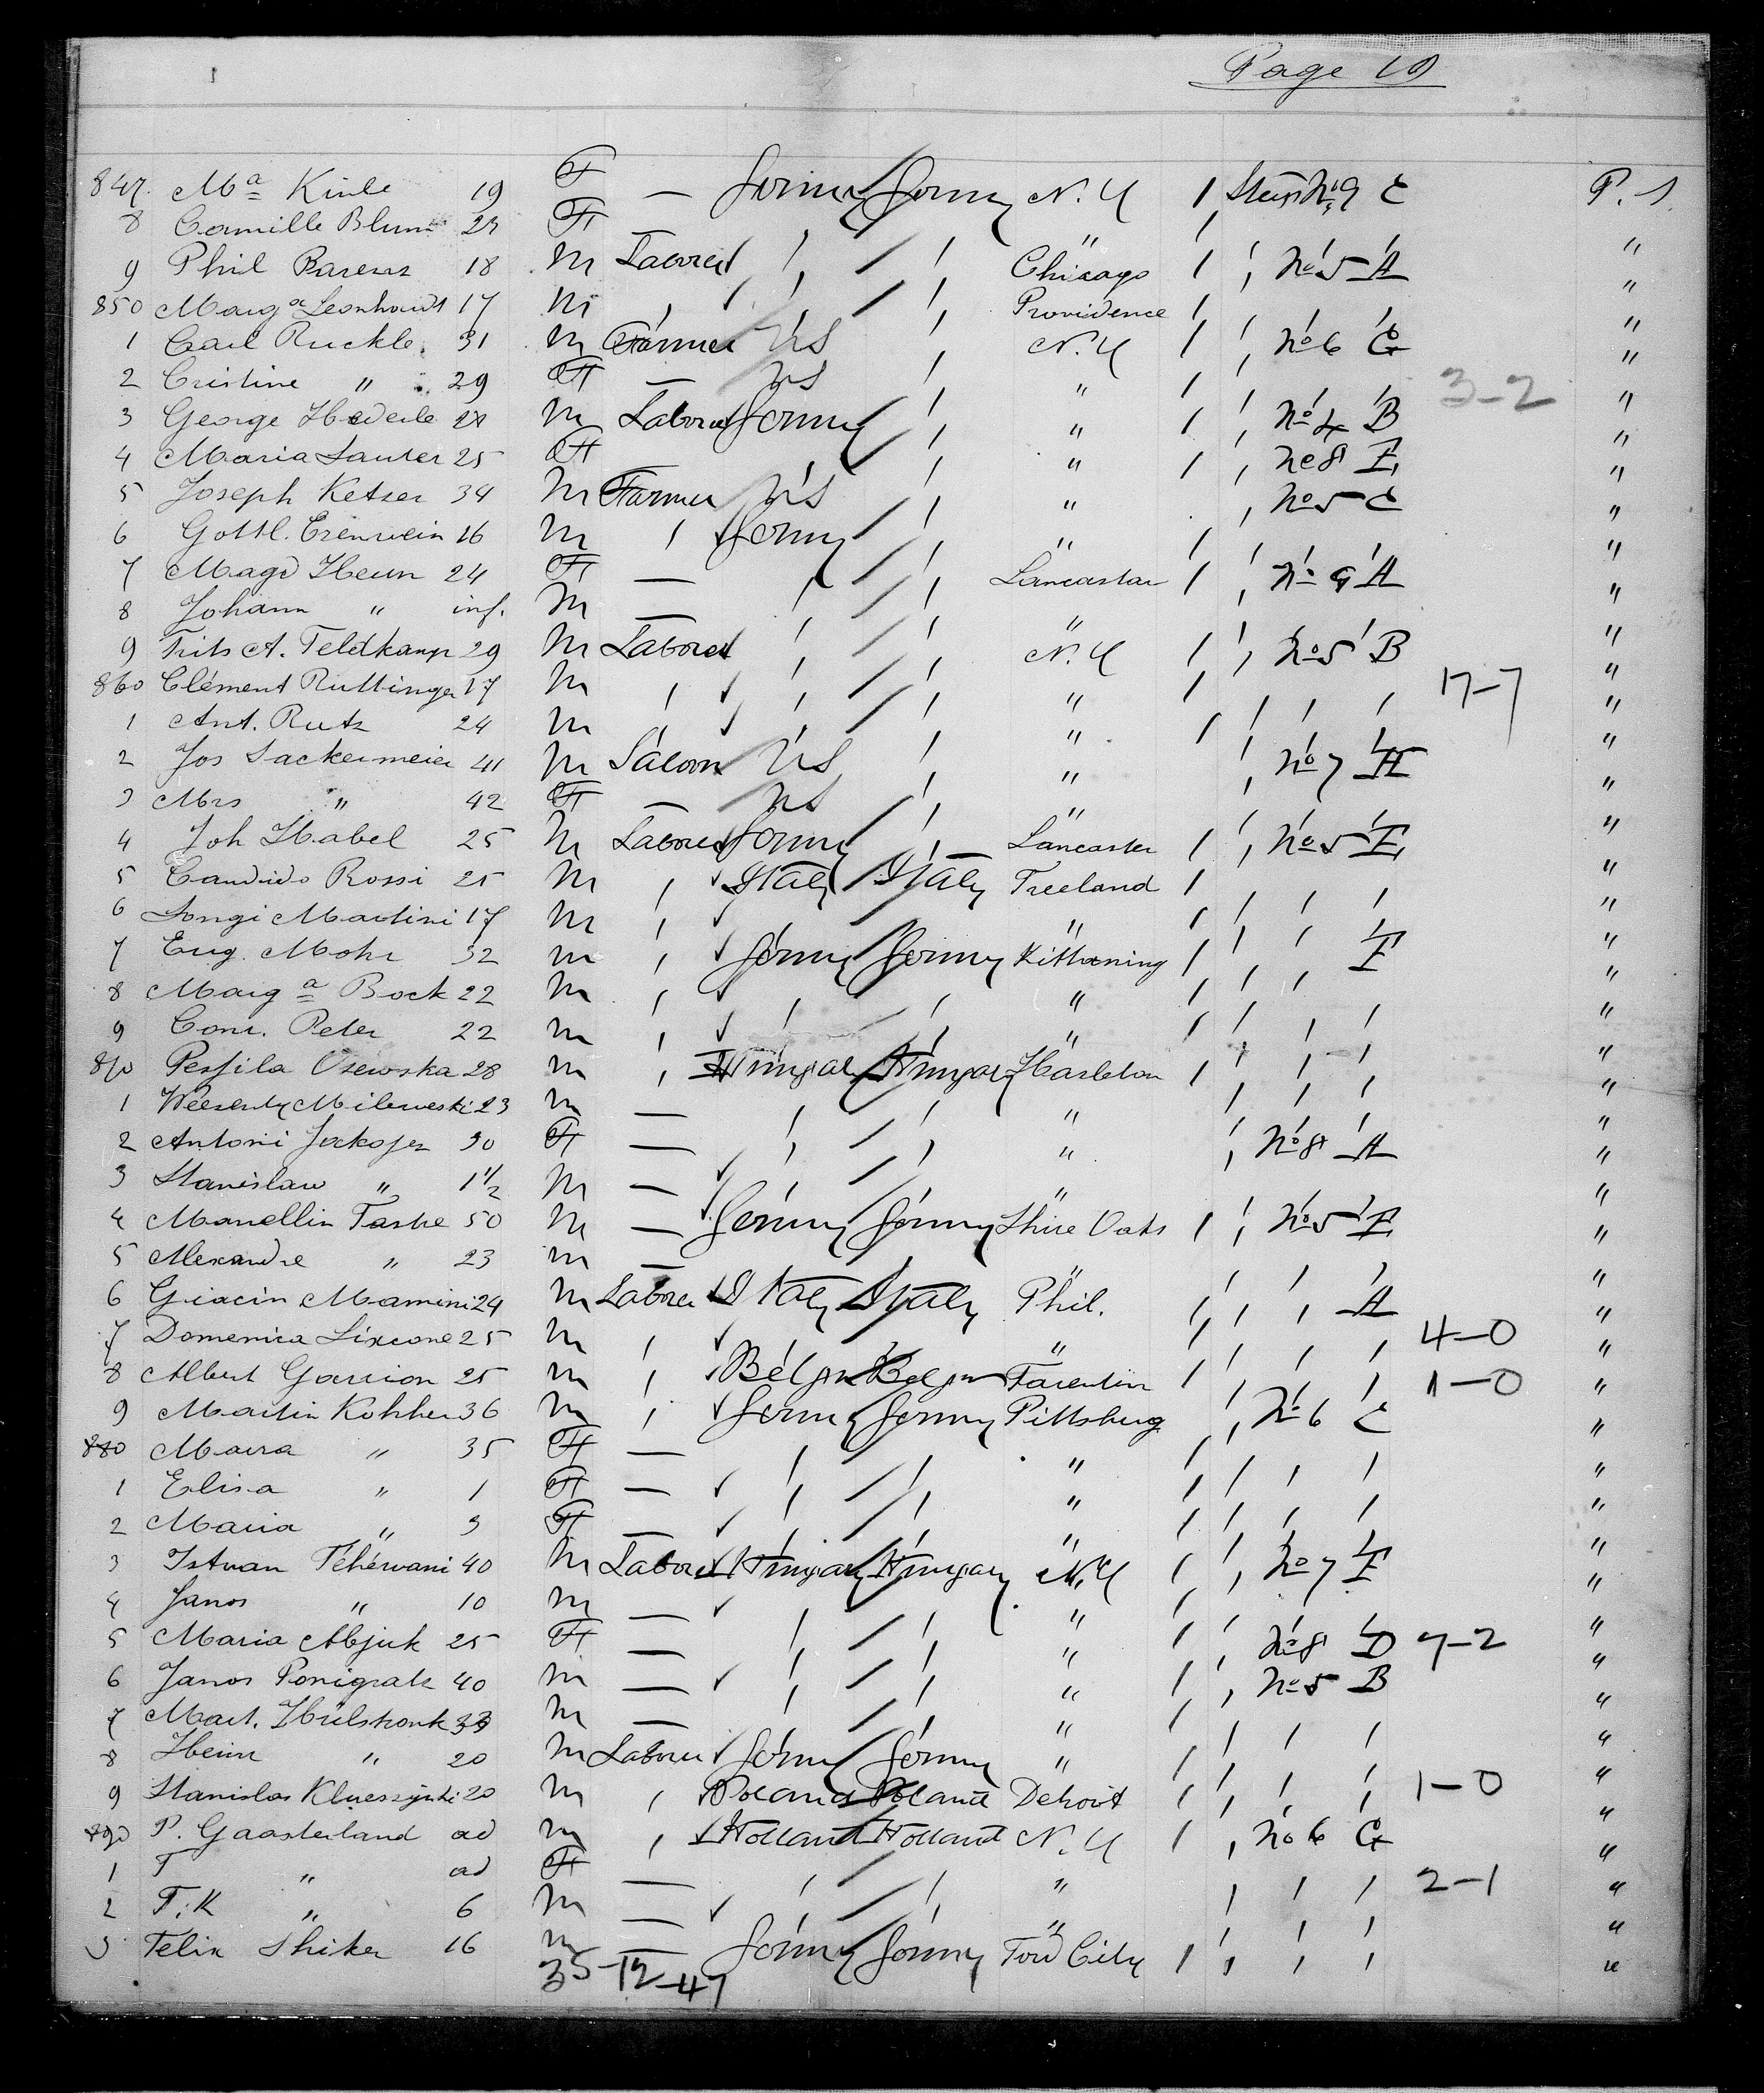 Page 19
847. Mª Kinle 19 F — Germy Germy N. Y 1 Steer Nº 9 C P. S.
8 Camille Blum 23 F " "
9 Phil Barenz 18 M Laborer Chicago 1 Nº 5 A "
850 Margª Leonhardt 17 M Providence 1 "
1 Carl Ruckle 31 M Farmer US N. Y 1 Nº 6 G "
2 Cristine " 29 F — US " 3-2 "
3 George Hederle M Laborer Germy " 1 Nº 4 B "
4 Maria Sauter 25 F " 1 Nº 8 E "
5 Joseph Ketzer 34 M Farmer US " Nº 5 C "
6 Gottl. Erenwein 16 M Germy " "
7 Magd Heun 24 F — Lancaster 1 Nº 9 A "
8 Johann " inf. M — " "
9 Frits A. Feldkamp 29 M Laborer N. Y 1 Nº 5 B "
860 Clément Ruttinger 17 M " 17-7 "
1 Ant. Rutz 24 M " "
2 Jos Sackermeier 41 M Saloon US " Nº 7 H "
3 Mrs " 42 F — US " "
4 Joh Habel 25 M Laborer Germy Lancaster 1 Nº 5 E "
5 Candido Rossi 25 M Italy Italy Freeland 1 "
6 Longi Martini 17 M " "
7 Eug. Mohr 32 M Germy Germy Kittaning 1 E "
8 Margª Bock 22 M " "
9 Conr. Peter 22 M " "
870 Persila Osewska 28 M Hungary Hungary Hasleton 1 "
1 Mileweski 23 M — " "
2 Antoni Jackojer 30 F — " Nº 8 A "
3 Stanislaw " 1½ M — " "
4 Manellin Tastre 50 M — Germy Germy Shire Oaks 1 Nº 5 E "
5 Alexandre " 23 M — " "
6 Giacin Mamini 24 M Laborer Italy Italy Phil. A "
7 Domenica Lixcone 25 M " 4-0 "
8 Albert Garrion 25 M Belgn Belgn Tarentin 1-0 "
9 Martin Kohher 36 M Germy Germy Pittsburg Nº 6 C "
880 Maria " 35 F — " "
1 Elisa " 1 F — " "
2 Maria " 3 F — " "
3 Istvan Féhérvani 40 M Laborer Hungary Hungary N. Y 1 Nº 7 E "
4 Janos " 10 M — " "
5 Maria Abjuk 25 F — " Nº 8 D 7-2 "
6 Janos Ponigratz 40 M — " Nº 5 B "
7 Mart. Hulshonk 33 M — " "
8 Heinr " 20 M Laborer Germy Germy " "
9 Stanislas Klueszynski 20 M Poland Poland Detroit 1-0 "
890 P. Gaasterland ad M Holland Holland N. Y 1 Nº 6 G "
1 T " ad F — " 2-1 "
2 T. K " 6 M — " "
3 Felix Shiker 16 M — Germy Germy Tow City 1 "
35-12-47